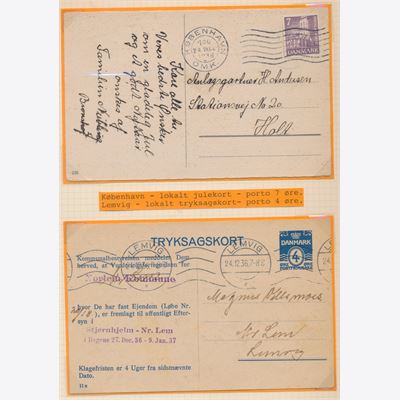 Kære alle tre
Vores bedste Ønsker
om en glædelig Jul
og et godt Nytaar
ønskes af
Familien
7
DANMARK
KØBENHAVN
OMK
Anlægsgartner H. Andersen
Stationsvej No 20.
Holt
København - lokalt julekort - porto 7 øre.
Lemvig - lokalt tryksagskort - porto 4 øre.
TRYKSAGSKORT
LEMVIG
LEMVIG
24.12.36.7-8
DANMARK
4
Kommunalbestyrelsen meddeler Dem
herved, at Vurderingsfortegnelsen for
Norlem Kommune
hvor De har fast Ejendom (Løbe Nr.
), er fremlagt til offentligt Efter-
syn i
Stjernhjelm - Nr. Lem
i Dagene 27. Dec. 36 - 9. Jan. 37
Klagefristen er 4 Uger fra sidstnævnte
Dato.
Magnus
Nr Lem
Lemvig